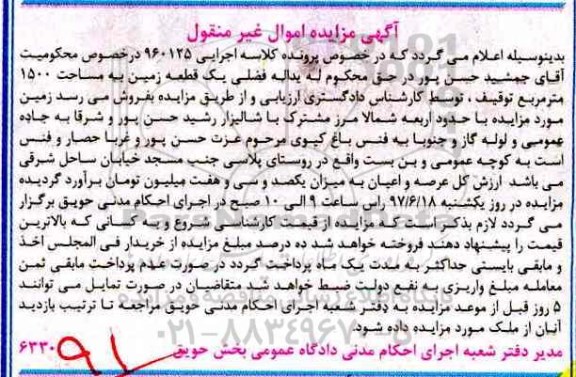 آگهی مزایده اموال غیر منقول
بدینوسیله اعلام می گردد که در خصوص پرونده کلاسه اجرایی ۹۶۰۱۲۵ درخصوص محکومیت
آقای جمشید حسن پور در حق محکوم له یداله فضلی یک قطعه زمین به مساحت ۱۵۰۰
مترمربع توقیف ، توسط کارشناس دادگستری ارزیابی و از طریق مزایده بفروش می رسد زمین
مورد مزایده با حدود اربعه شمالا مرز مشترک با شالیزار رشید حسن پور و شرقا به جاده
عمومی و لوله گاز و جنوبا به فنس باغ کیوی مرحوم عزت حسن پور و غربا حصار و فنس
است به کوچه عمومی و بن بست واقع در روستای پلاسی جنب مسجد خیابان ساحل شرقی
می باشد ارزش کل عرصه و اعیان به میزان یکصد و سی و هفت میلیون تومان برآورد گردیده
مزایده در روز یکشنبه ۹۷/۶/۱۸ راس ساعت ۹ الی ۱۰ صبح در اجرای احکام مدنی حویق برگزار
می گردد لازم بذکر است که مزایده از قیمت کارشناسی شروع و به کسانی که بالاترین
قیمت را پیشنهاد دهند فروخته خواهد شد ده درصد مبلغ مزایده از خریدار فی المجلس اخذ
و مابقی بایستی حداکثر به مدت یک ماه پرداخت گردد در صورت عدم پرداخت مابقی ثمن
معامله مبلغ واریزی به نفع دولت ضبط خواهد شد متقاضیان در صورت تمایل می توانند
۵ روز قبل از موعد مزایده به دفتر شعبه اجرای احکام مدنی حویق مراجعه تا ترتیب بازدید
آنان از ملک مورد مزایده داده شود.
مدیر دفتر شعبه اجرای احکام مدنی دادگاه عمومی بخش حویق ۶۳۳۰
۹۲
ParsNamadData
۰۲۱-۸۸۳۴۹۶۷۰-۵